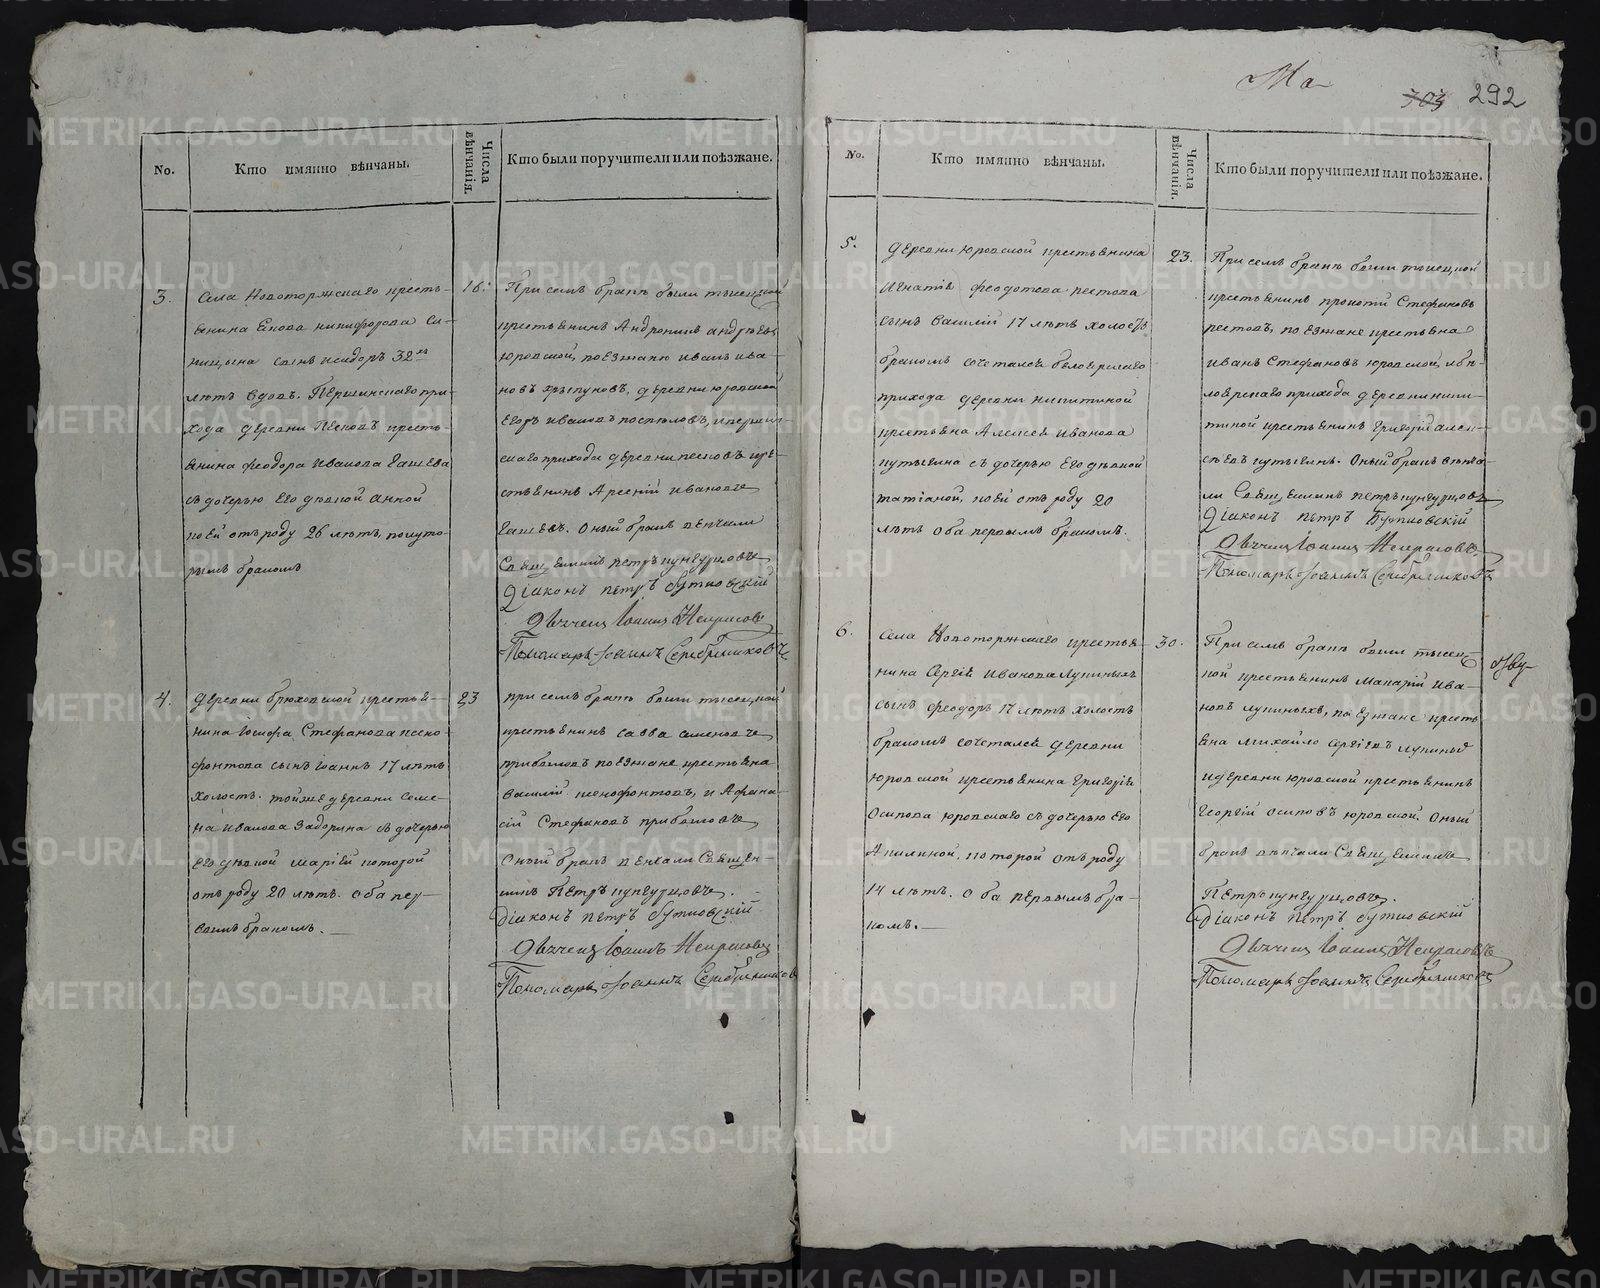 Ма
303 292
No.
Кто имянно вѣнчаны.
Числа вѣнчанія.
Кто были поручители или поѣзжане.
3.
Села Новоторжскаго кресть-
янина Никифорова Си-
ницына сынъ Исидоръ 32хъ
лѣтъ вдовъ. Першинскаго при-
хода деревни Песковъ кресть-
янина Феодора Иванова Гашева
съ дочерью его дѣвкой Анной
коей отъ роду 26 лѣтъ, полуто-
рымъ бракомъ
16.
При семъ бракѣ были тысецкой
крестьянинъ Андроникъ Андреевъ
Юровской, поезжаню Иванъ Ива-
новъ Хрыпуновъ, деревни Юровской
Егоръ Ивановъ Поспѣловъ, и першин-
скаго прихода деревни Песковъ кре-
стьянинъ Арсеній Ивановъ
Гашевъ. Оный бракъ венчали
Священникъ Петръ Кунгурцовъ
Діаконъ Петръ Бутковскій
Дьячецъ Іоаннъ Некрасовъ
Пономарь Іоаннъ Серебрянниковъ
4.
Деревни Брюховской крестья-
нина Іосифа Стефанова Ксено-
фонтова сынъ Іоаннъ 17 лѣтъ
холостъ. Тойже деревни Семе-
на Иванова Задорина съ дочерью
его дѣвкой Маріей которой
отъ роду 20 лѣтъ. Оба пер-
вымъ бракомъ.
23
При семъ бракѣ были тысецкой
крестьянинъ Савва Семеновъ
Прибыловъ поезжане крестьяна
Василій Ксенофонтовъ, и Афана-
сій Стефановъ Прибыловъ
Оный бракъ венчали Священ-
никъ Петръ Кунгурцовъ.
Діаконъ Петръ Бутковскій
Дьячецъ Іоаннъ Некрасовъ
Пономарь Іоаннъ Серебрянниковъ
No.
Кто имянно вѣнчаны.
Числа вѣнчанія.
Кто были поручители или поѣзжане.
5.
Деревни Юровской крестьянина
Игнатія Феодотова Рестова
сынъ Василій 17 лѣтъ холостъ
бракомъ сочетался Белоярскаго
прихода деревни Никитиной
крестьяна Алексея Иванова
Путьвина съ дочерью его дѣвкой
Татіаной, коей отъ роду 20
лѣтъ оба первымъ бракомъ.
23.
При семъ бракѣ были тысецкой
крестьянинъ Прокопій Стефановъ
Рестовъ, поезжане крестьяна
Иванъ Стефановъ Юровской, и Бѣ-
лоярскаго прихода деревни Ники-
тиной крестьянинъ Григорій Алек-
сѣевъ Путьвинъ. Оный бракъ вѣнча-
ли Священникъ Петръ Кунгурцовъ
Діаконъ Петръ Бутковскій
Дьячецъ Іоаннъ Некрасовъ
Пономарь Іоаннъ Серебрянниковъ
6.
Села Новоторжскаго крестья-
нина Сергія Иванова Лупиныхъ
сынъ Феодоръ 17 лѣтъ холостъ
бракомъ сочетался деревни
Юровской крестьянина Григорія
Осипова Юровскаго съ дочерью его
Акилиной, которой отъ роду
14 лѣтъ. Оба первымъ бра-
комъ.
30.
При семъ бракѣ были тысец-
кой крестьянинъ Макарій Ива-
новъ Лупиныхъ, поезжане кресть
яна Михайло Сергіевъ Лупиныхъ
и деревни Юровской крестьянинъ
Георгій Осиповъ Юровской. Оный
бракъ вѣнчали Священникъ
Петръ Кунгурцовъ.
Діаконъ Петръ Бутковскій
Дьячецъ Іоаннъ Некрасовъ
Пономарь Іоаннъ Серебрянниковъ
METRIKI.GASO-URAL.RU